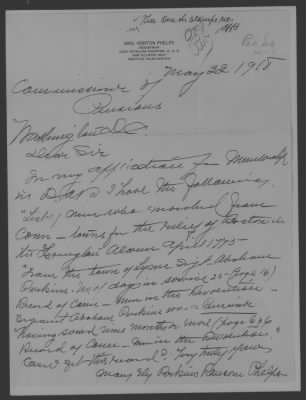 MRS. HORTON PHELPS
REGISTRAR
LADY STIRLING CHAPTER, D. A. R.
SEATTLE, WASHINGTON
May 22 1918
Commissioner of
Pensions
Washington D.C.
Dear Sir
In my application for Membership
in D.A.R. I have the following.
"List of men who marched from
Conn - towns for the relief of Boston in
the Lexington Alarm April 1775 -
"From the town of Lyme Sergt. Abraham
Perkins, No of days in service 25 - (Page 16)
Record of Conn - Men in the Revolution -
Sergeant Abraham Perkins
having served nine months or more (page 636
Record of Conn - Men in the Revolution.
Can I get this record? Very truly yours
Mary Ely Perkins Ransom Phelps